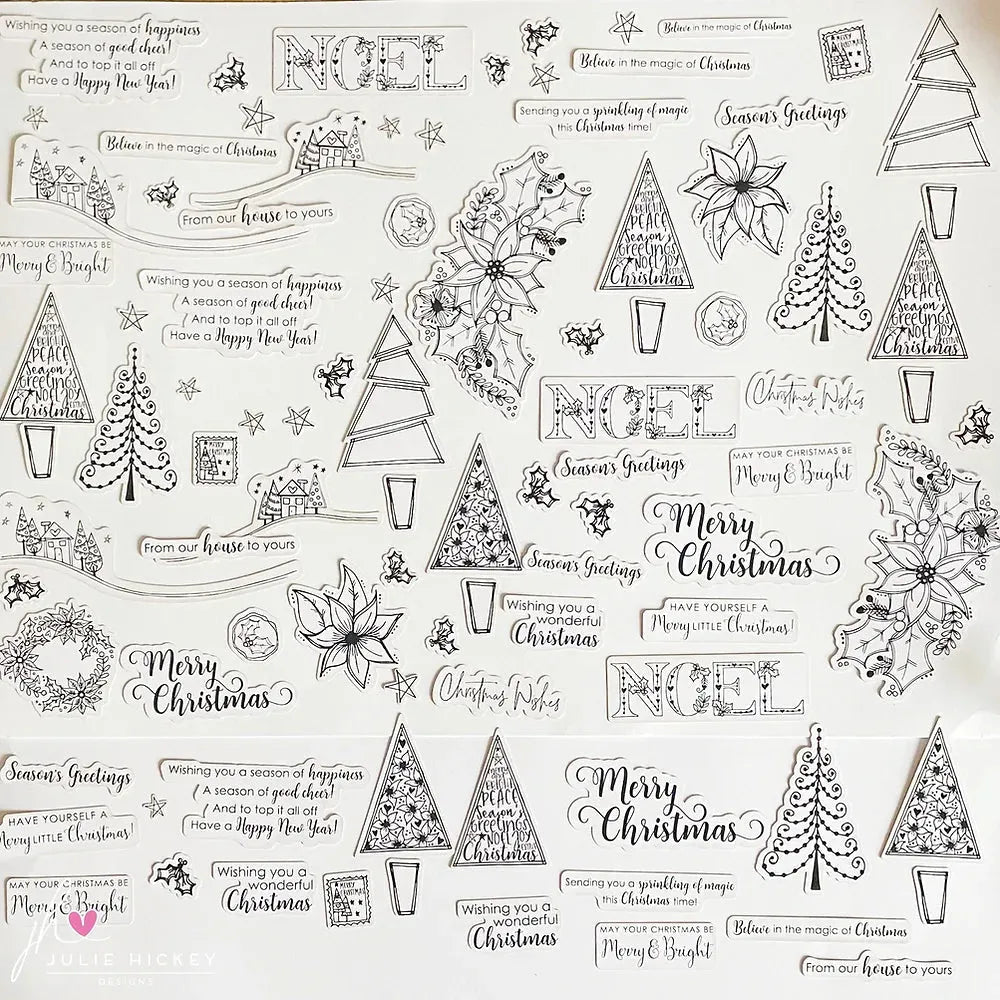 Wishing you a season of happiness
A season of good cheer!
And to top it all off
Have a Happy New Year!
NOEL
Believe in the magic of Christmas
MERRY CHRISTMAS
Believe in the magic of Christmas
Sending you a sprinkling of magic
this Christmas time!
Season's Greetings
Believe in the magic of Christmas
From our house to yours
MAY YOUR CHRISTMAS BE
Merry & Bright
PEACE
Season's
Greetings
NOEL JOY
Christmas
BRIGHT
PEACE
Season's
Greetings
NOEL JOY
Christmas
Wishing you a season of happiness
A season of good cheer!
And to top it all off
Have a Happy New Year!
merry
and
BRIGHT
PEACE
Season's
Greetings
NOEL JOY
Christmas
NOEL
Christmas Wishes
MERRY
CHRISTMAS
Season's Greetings
MAY YOUR CHRISTMAS BE
Merry & Bright
Merry
Christmas
From our house to yours
Season's Greetings
Wishing you a
wonderful
Christmas
HAVE YOURSELF A
Merry LITTLE Christmas!
Merry
Christmas
Christmas Wishes
NOEL
Season's Greetings
Wishing you a season of happiness
A season of good cheer!
And to top it all off
Have a Happy New Year!
PEACE
Season's
Greetings
NOEL JOY
Christmas
Merry
Christmas
HAVE YOURSELF A
Merry LITTLE Christmas!
MAY YOUR CHRISTMAS BE
Merry & Bright
Wishing you a
wonderful
Christmas
MERRY
CHRISTMAS
Sending you a sprinkling of magic
this Christmas time!
Wishing you a
wonderful
Christmas
MAY YOUR CHRISTMAS BE
Merry & Bright
Believe in the magic of Christmas
From our house to yours
jh
JULIE HICKEY
DESIGNS